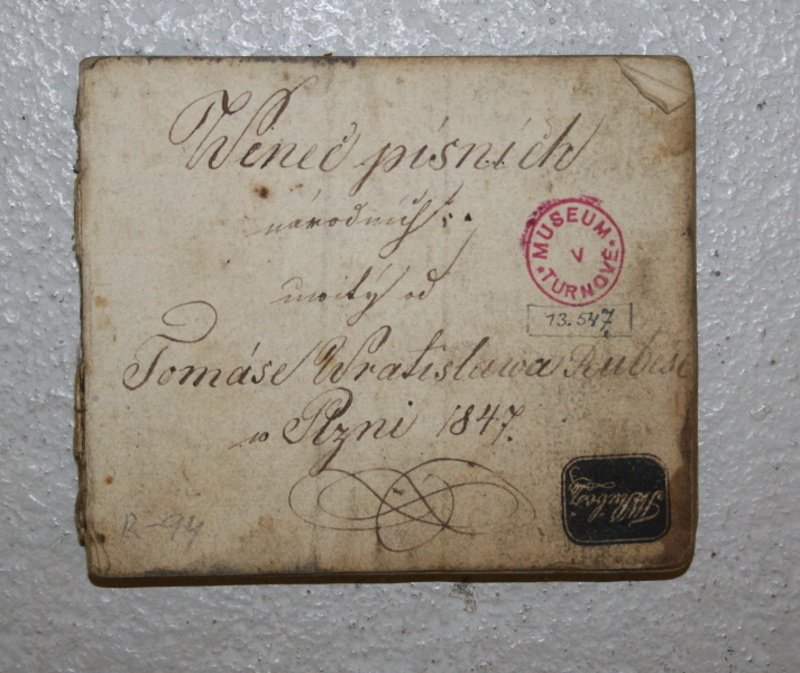 Wěneč písních
národních
uwitý od
Tomáše Wratislawa Rubeše
w Plzni 1847.
MUSEUM
V
TURNOVĚ
13.547
R-94